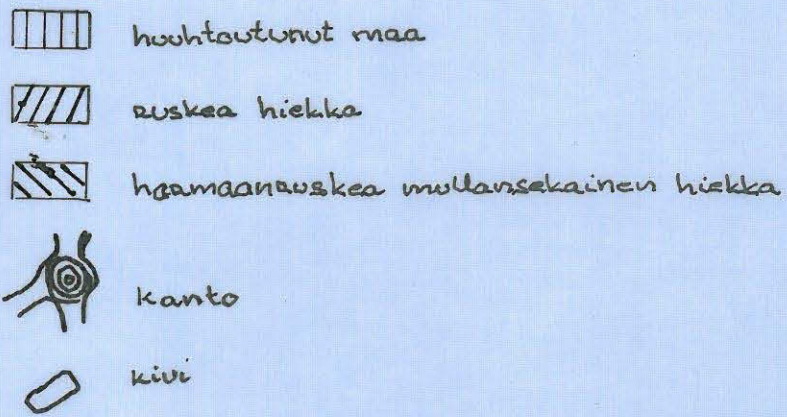 huuhtoutunut maa
ruskea hiekka
harmaanruskea mullansekainen hiekka
kanto
kivi